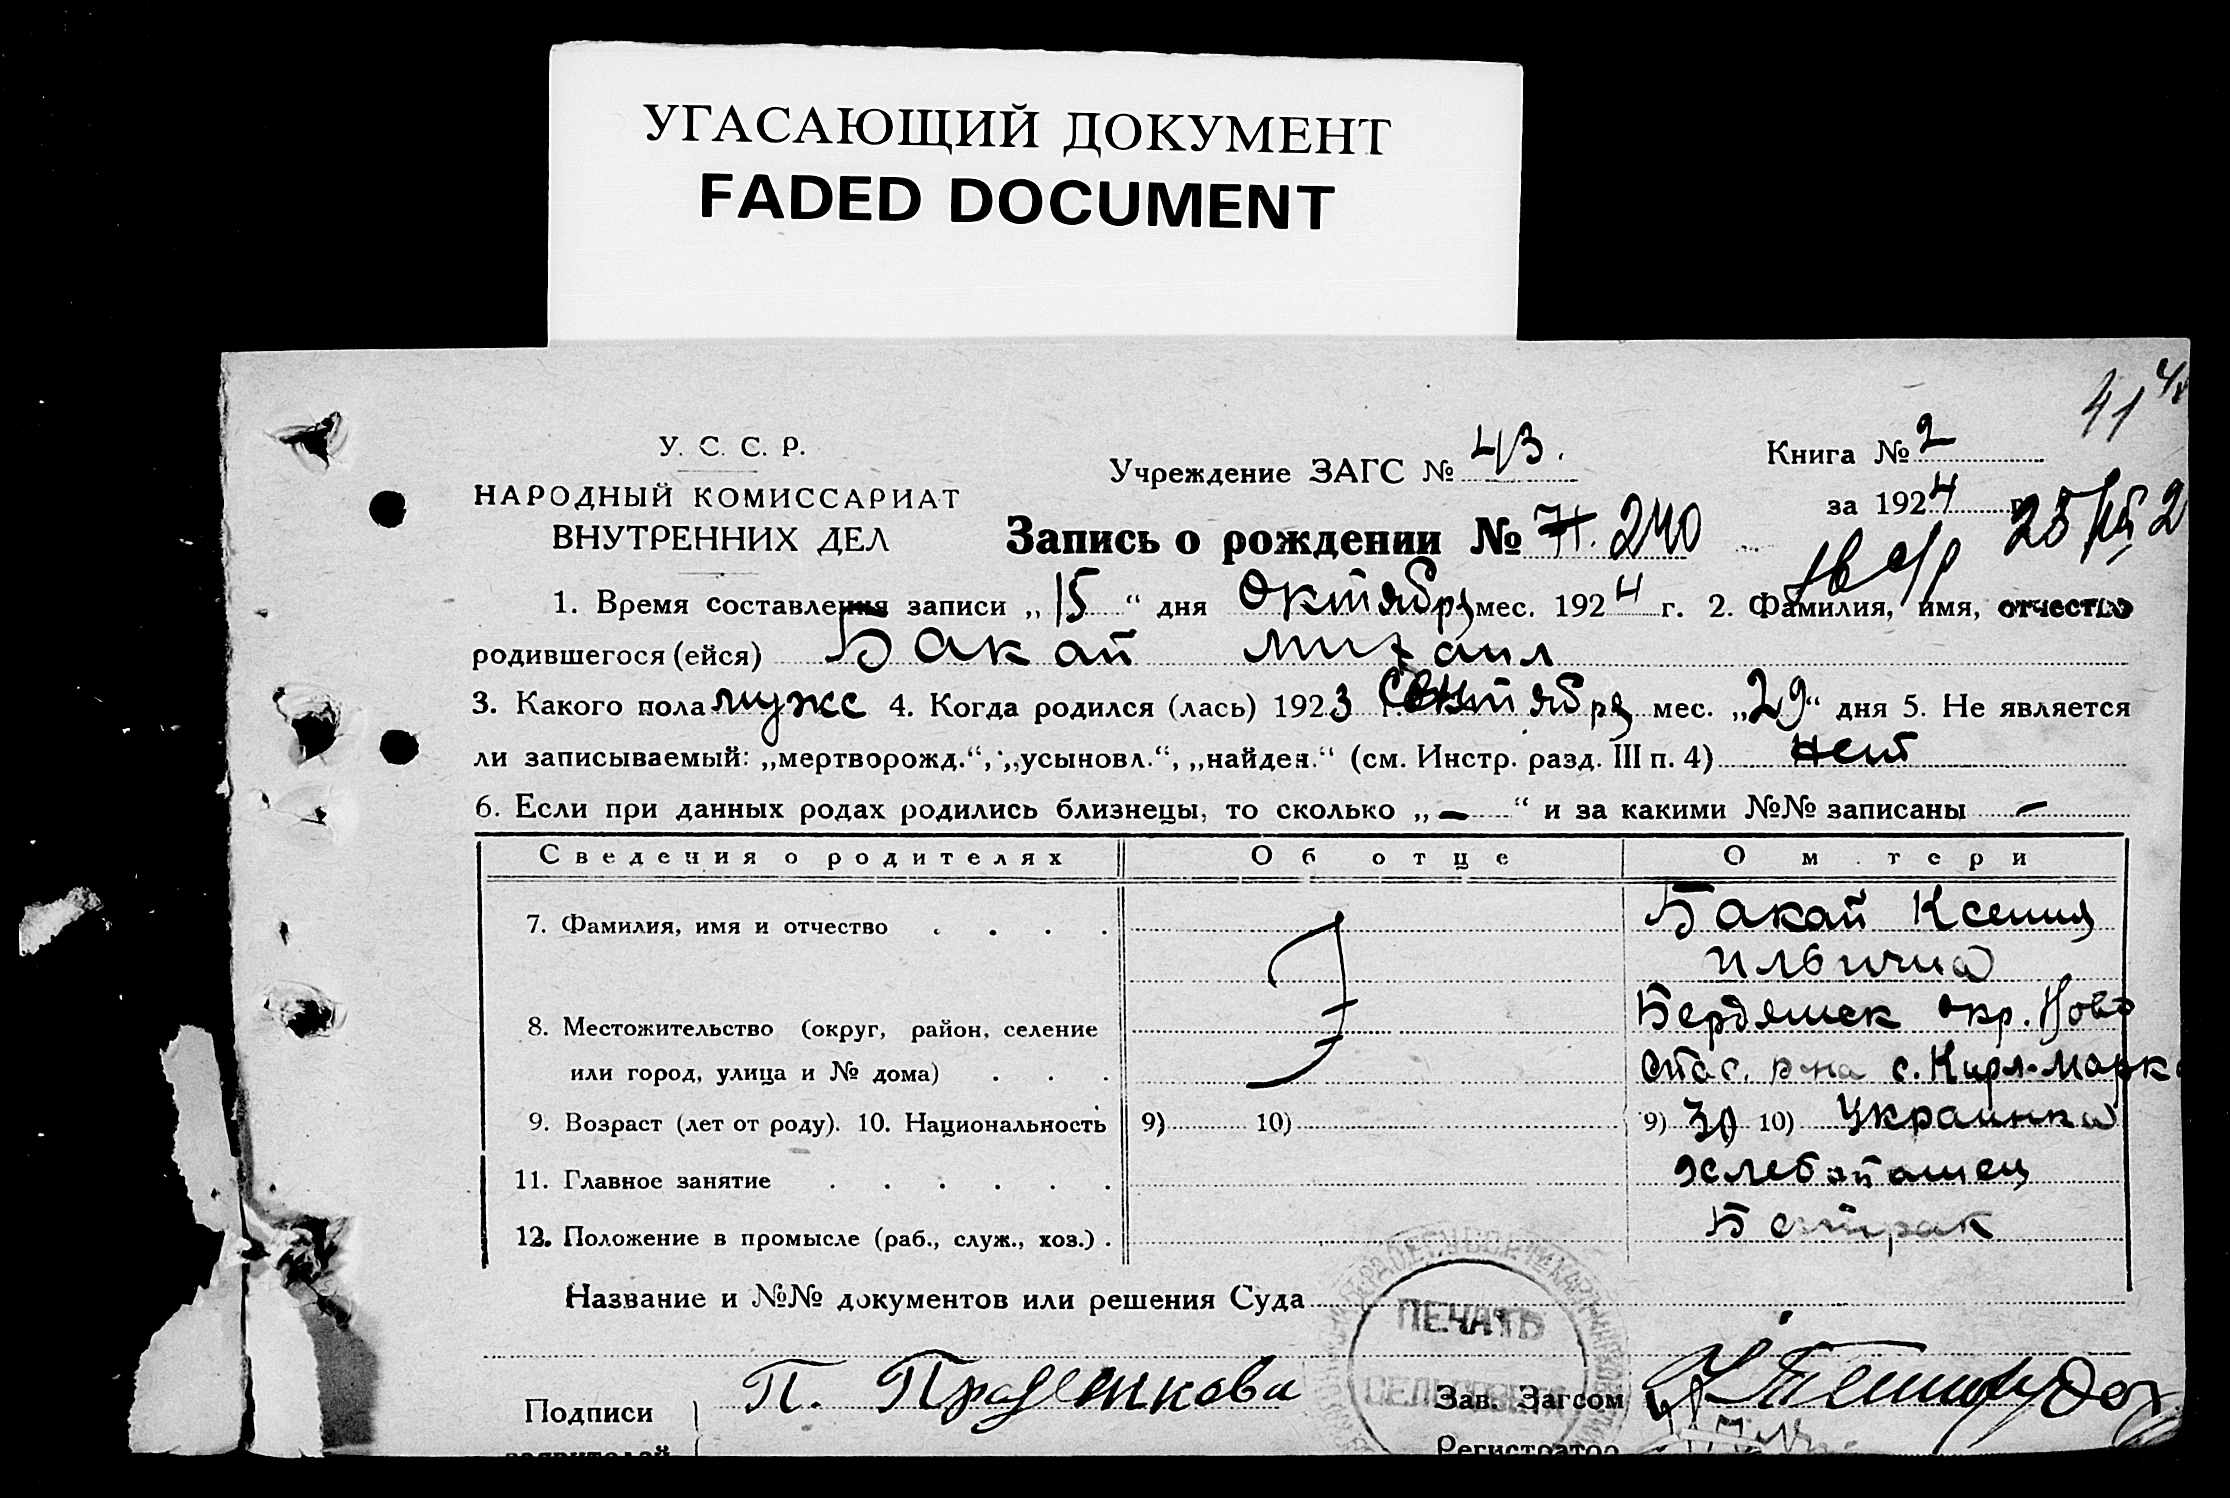 УГАСАЮЩИЙ ДОКУМЕНТ
FADED DOCUMENT
41
У. С. С. Р.
НАРОДНЫЙ КОМИССАРИАТ
ВНУТРЕННИХ ДЕЛ
Учреждение ЗАГС № 43.
Книга № 2
за 1924 г.
Запись о рождении № 240
1. Время составления записи „15“ дня Октября мес. 1924 г. 2. Фамилия, имя, отчество
родившегося (ейся) Бакай Михаил
3. Какого пола мужс 4. Когда родился (лась) 1923 г. Сентября мес. „29“ дня 5. Не является
ли записываемый: „мертворожд.“, „усыновл.“, „найден.“ (см. Инстр. разд. III п. 4) нет
6. Если при данных родах родились близнецы, то сколько „—“ и за какими №№ записаны —
Сведения о родителях Об отце О м.тери
7. Фамилия, имя и отчество . . . . Бакай Ксения
Ильична
8. Местожительство (округ, район, селение Бердянск окр. Ново
или город, улица и № дома) . . . спас. р-на с. Карл-Марк
9. Возраст (лет от роду). 10. Национальность 9) 10) 9) 30 10) Украинка
11. Главное занятие . . . . . . Хлебопашец
12. Положение в промысле (раб., служ., хоз.) . Батрак
Название и №№ документов или решения Суда
ПЕЧАТЬ
Подписи П. Зав. Загсом
заявителей Регистратор